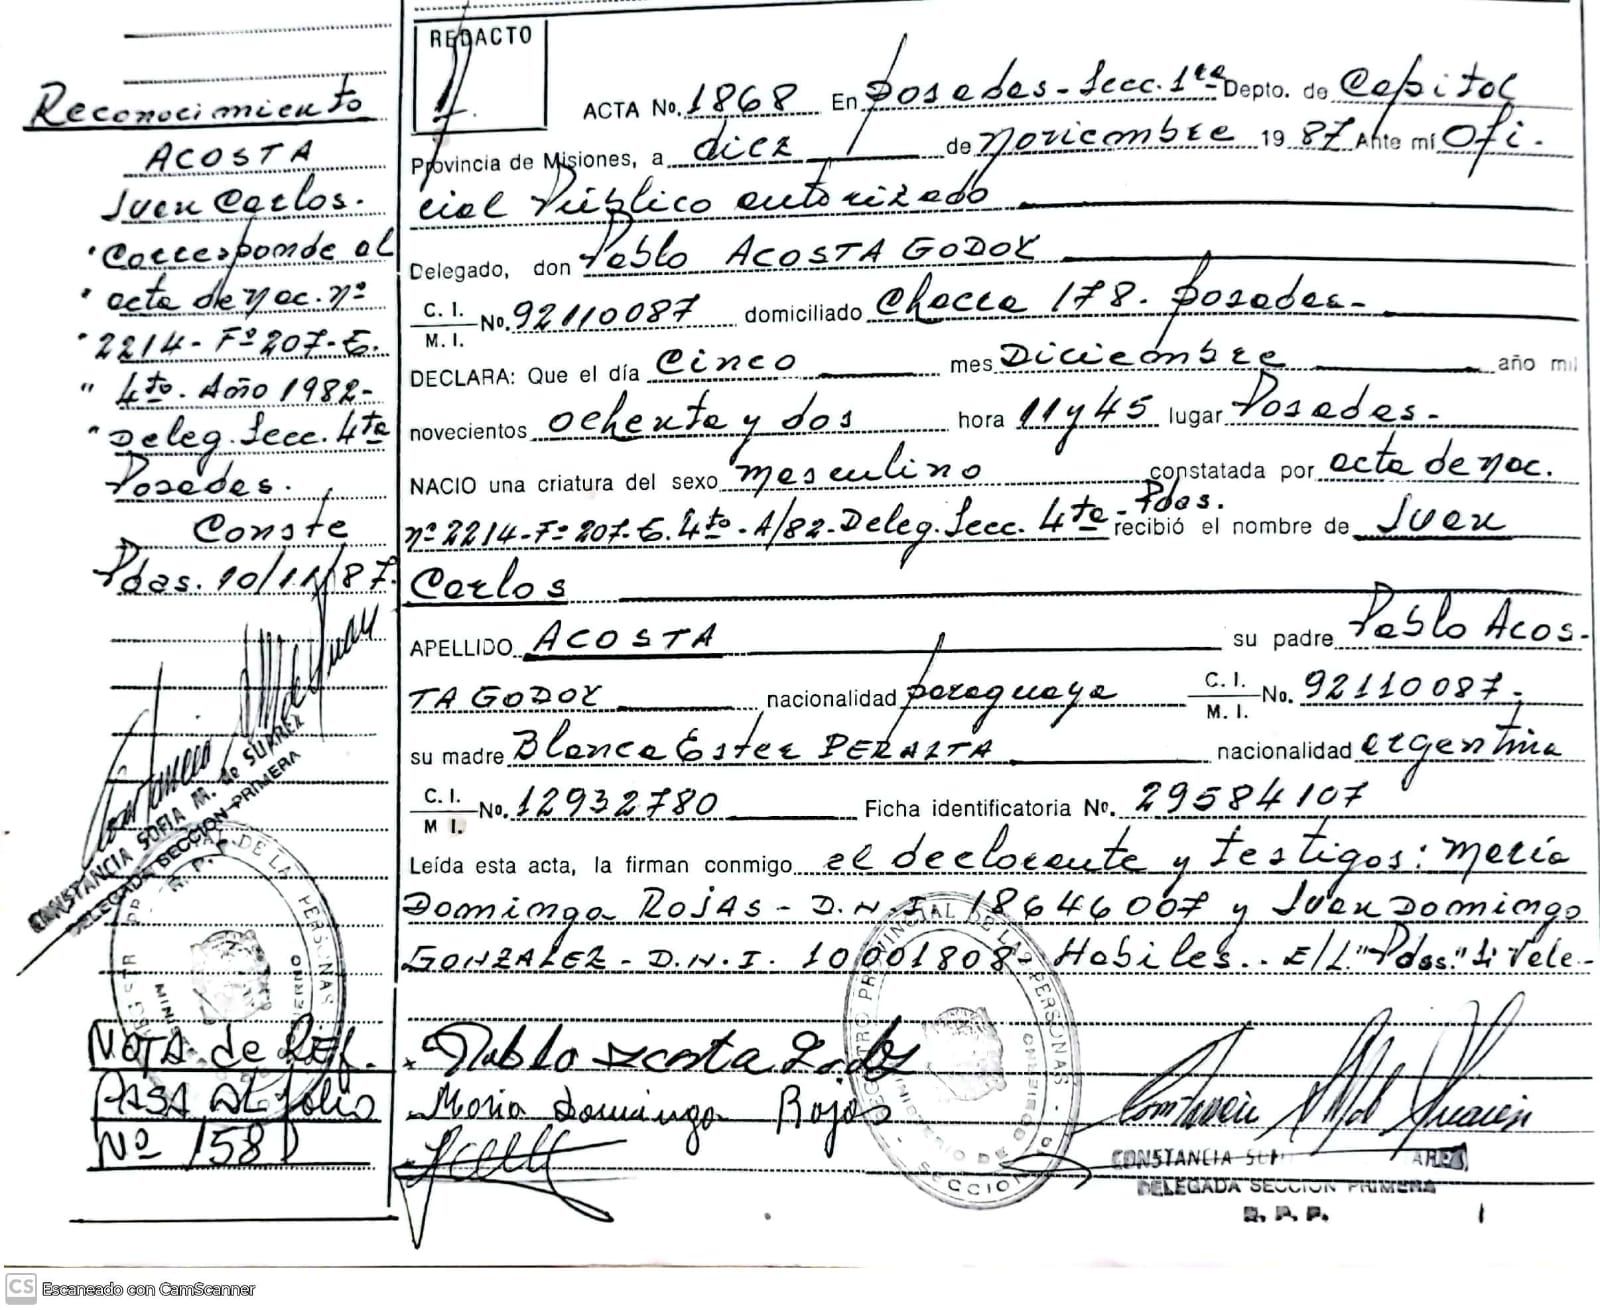 Reconocimiento
ACOSTA
Juan Carlos.
"Corresponde al
" acta de nac. nº
"2214- Fº 207- E.
" 4to. Año 1982-
"Deleg. Secc. 4ta
Posadas.
Conste
Pdas. 10/11/87.
CONSTANCIA SOFIA M. de SUAREZ
DELEGADA SECCION PRIMERA
R. P. P.
NOTA de REF.
PASA AL folio
Nº 158
REDACTO
ACTA No. 1868 En Posadas- Secc. 1ra Depto. de Capital
Provincia de Misiones, a diez de noviembre 19 87 Ante mí Ofi-
cial Público autorizado
Delegado, don Pablo ACOSTA GODOY
C. I. / M. I. No. 92110087 domiciliado Chacra 178. Posadas-
DECLARA: Que el día Cinco mes Diciembre año mil
novecientos ochenta y dos hora 11 y 45 lugar Posadas-
NACIO una criatura del sexo masculino constatada por acta de nac.
nº 2214- Fº 207- E. 4to- A/82- Deleg. Secc. 4ta- Pdas. recibió el nombre de Juan
Carlos
APELLIDO ACOSTA su padre Pablo ACOS-
TA GODOY nacionalidad paraguaya C. I. / M. I. No. 92110087-
su madre Blanca Ester PERALTA nacionalidad argentina
C. I. / M I. No. 12932780 Ficha identificatoria No. 29584107
Leída esta acta, la firman conmigo el declarante y testigos: María
Dominga ROJAS- D.N.I. 18646007 y Juan Domingo
GONZALEZ- D.N.I. 10001808- Habiles.. E/L."Pdas." Si Vale-
Pablo Acosta Godoy
Maria Dominga Rojas
CONSTANCIA
DELEGADA SECCION PRIMERA
R. P. P.
REGISTRO PROVINCIAL DE LAS PERSONAS
CS Escaneado con CamScanner